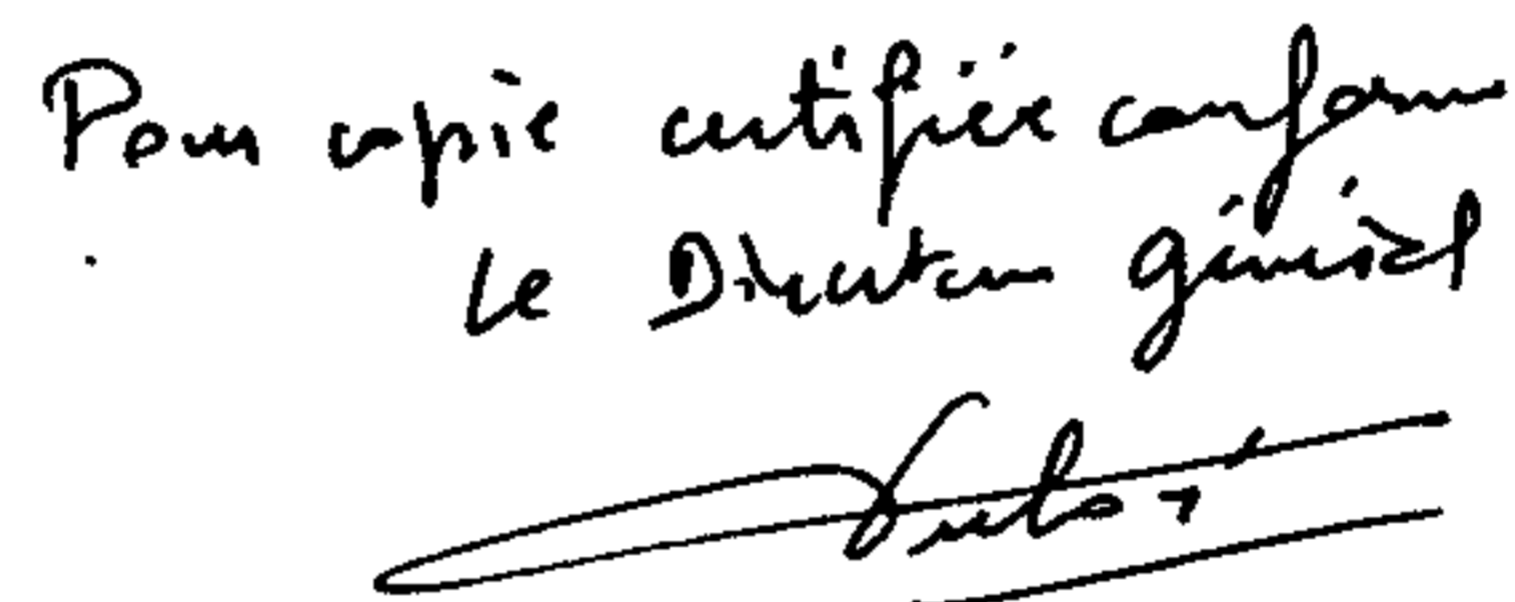 Pour copie certifiée conforme
Le Directeur général